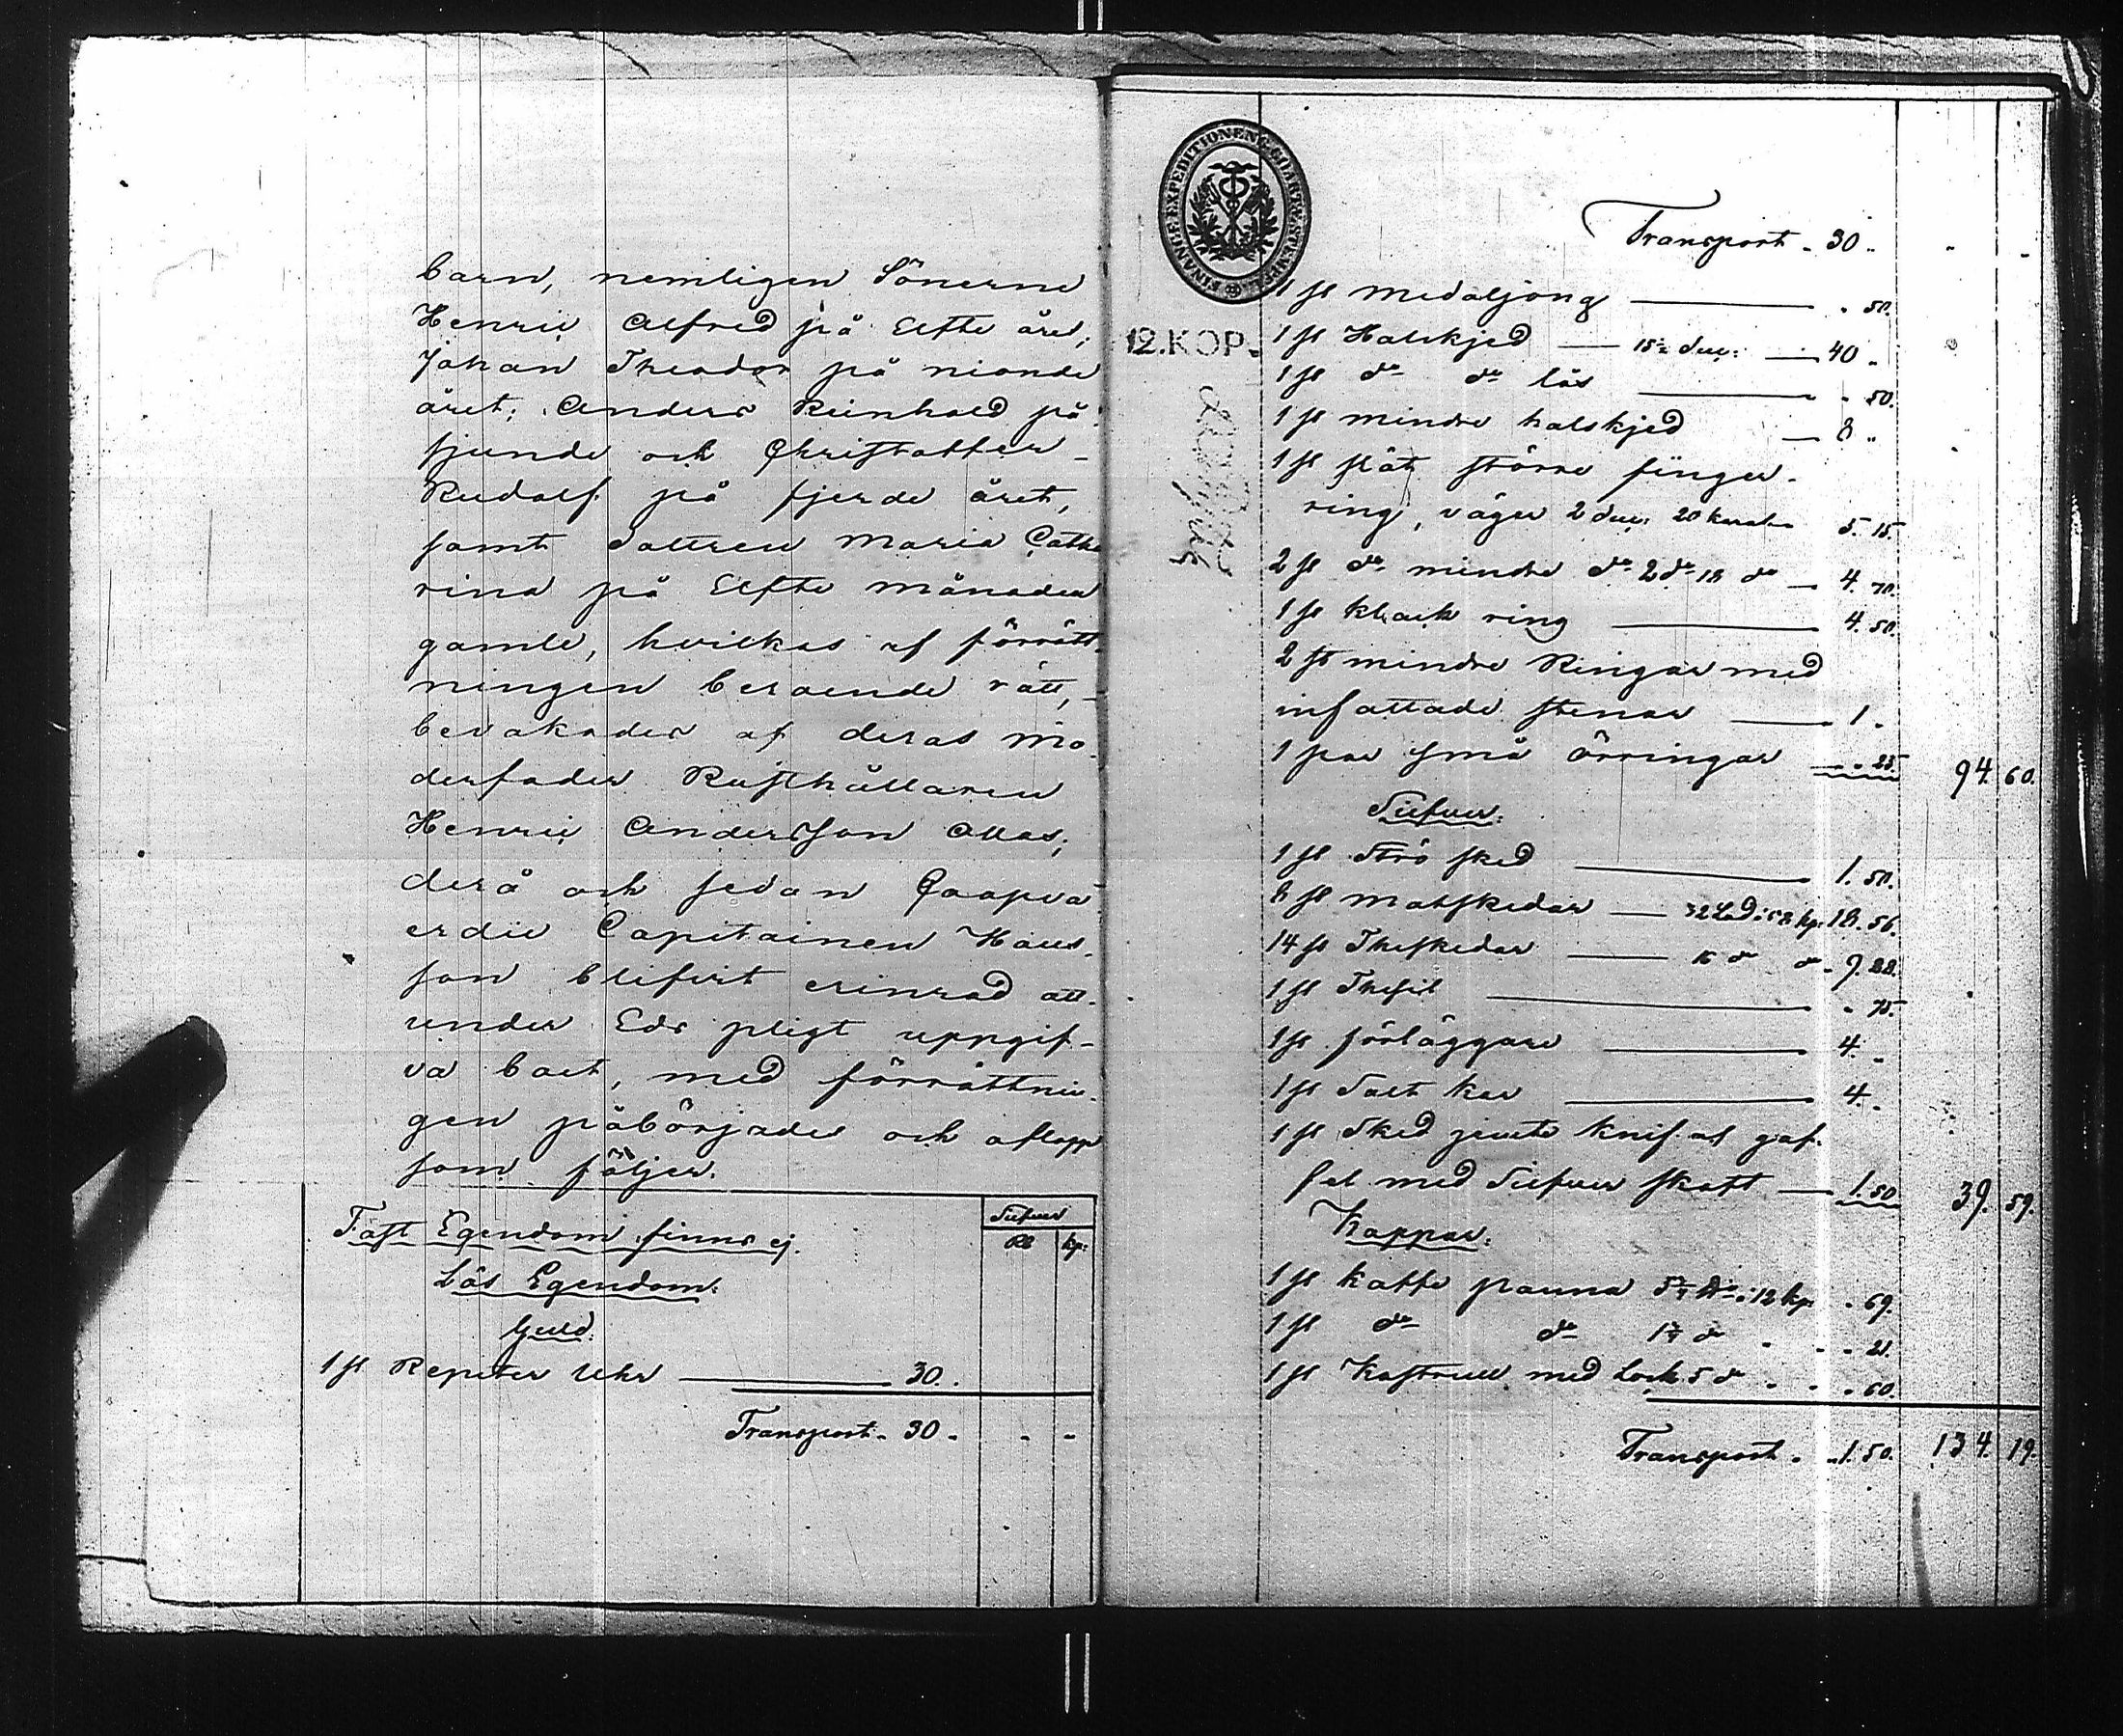 barn, nemligen Sönerne
Henric Alfred på Elfte året,
Johan Theodor på nionde
året; Anders Reinhold på
sjunde och Christoffer
Rudolf på fjerde året,
samt dottren Maria Catha
rina på Elfte månaden
gamle, hvilkas af förrätt-
ningen beroende rätt,
bevakades af deras mo-
derfader Rusthållaren
Henric Andersson Allas;
derå och sedan
erdie Capitainen Hans-
son blifvit erinrad att
under Eds pligt uppgif-
va boet, med förrättnin-
gen påbörjades och aflopp
som följer.
Fast Egendom finns ej.
Silfver
Rb kp:
Lös Egendom:
Guld:
1 st Repeter Uhr 30.
Transport. 30. - -
FINANCE EXPEDITIONENS CHARTÆ STEMPEL
12. KOP.
Transport. 30. - -
1 st medaljong . 50.
1 st Halskjed 15½ duc: 40.
1 st do do lås . 50.
1 st mindre halskjed 8.
1 st slät större finger-
ring, väger 2 duc: 20 5. 15.
2 st do mindre do 2 do 18 do 4. 70.
1 st klack ring 4. 50.
2 st mindre Ringar med
infattade stenar 1.
1 par små örringar . 25. 94. 60.
Silfver:
1 st Strö sked 1. 50.
8 st matskedar 32 Lod à 58 kp: 18. 56.
14 st Theskedar 16 do do 9. 28.
1 st Thesil . 75.
1 st förläggare 4.
1 st Salt kar 4.
1 st Sked jemte knif. o. gaf-
fel med Silfver skaft 1. 50. 39. 59.
Koppar:
1 st kaffe panna à 12 kp . 69.
1 st do do 1¾ do . 21.
1 st Kastrull med lock 5 do . 60.
Transport. 1. 50. 134. 19.